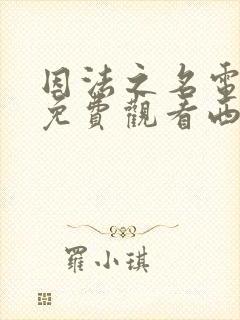 因法之名電
免費觀看西
羅小琪